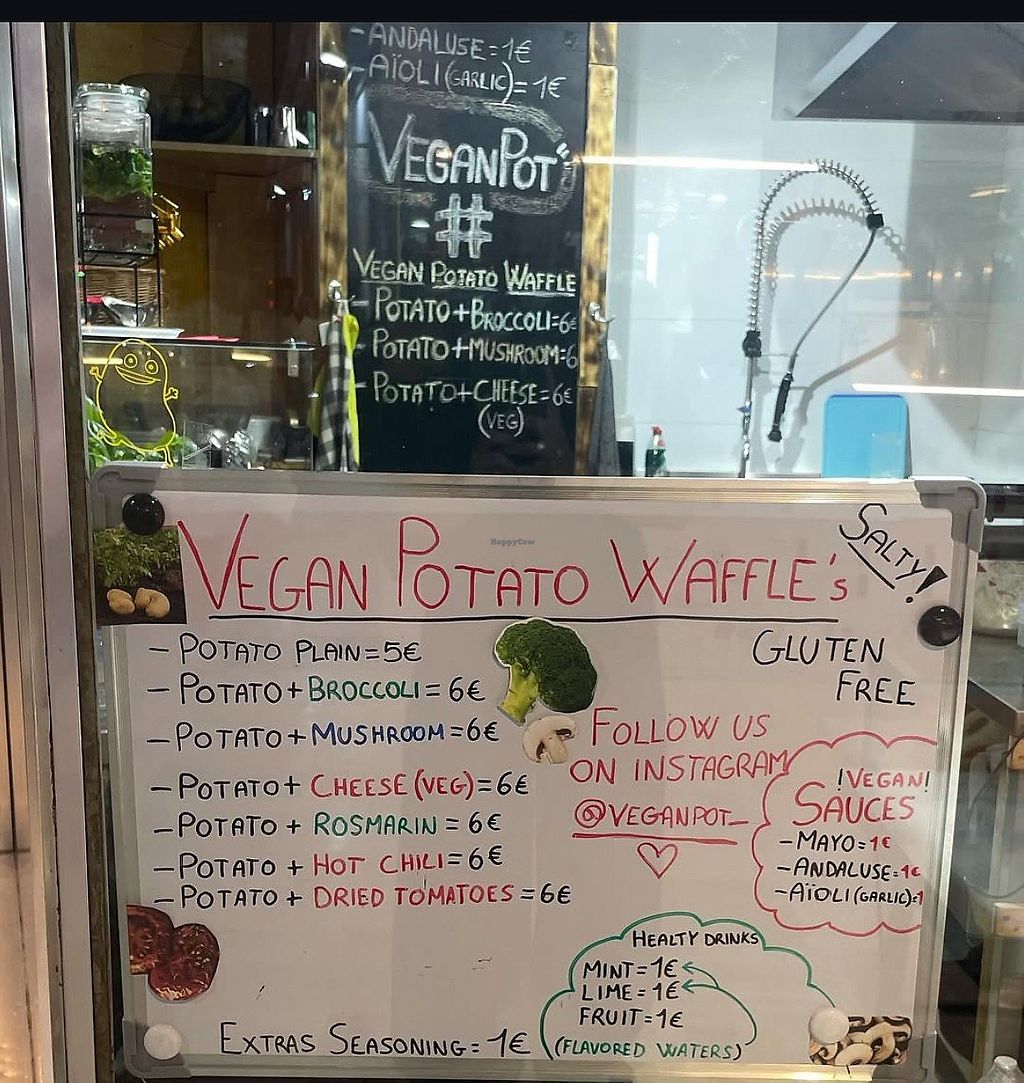 - ANDALUSE=1€
- AÏOLI(GARLIC)=1€
VEGANPOT"
#
VEGAN POTATO WAFFLE
- POTATO+BROCCOLI=6€
- POTATO+MUSHROOM=6
- POTATO+CHEESE=6€
(VEG)
HappyCow
SALTY!
VEGAN POTATO WAFFLE's
GLUTEN
FREE
- POTATO PLAIN=5€
- POTATO+BROCCOLI=6€
- POTATO+MUSHROOM=6€
- POTATO+CHEESE(VEG)=6€
- POTATO + ROSMARIN = 6€
- POTATO + HOT CHILI=6€
- POTATO + DRIED TOMATOES = 6€
FOLLOW US
ON INSTAGRAM
@VEGANPOT_
!VEGAN!
SAUCES
-MAYO=1€
-ANDALUSE=1€
-AÏOLI(GARLIC)=1
HEALTY DRINKS
MINT=1€
LIME=1€
FRUIT=1€
(FLAVORED WATERS)
EXTRAS SEASONING= 1€